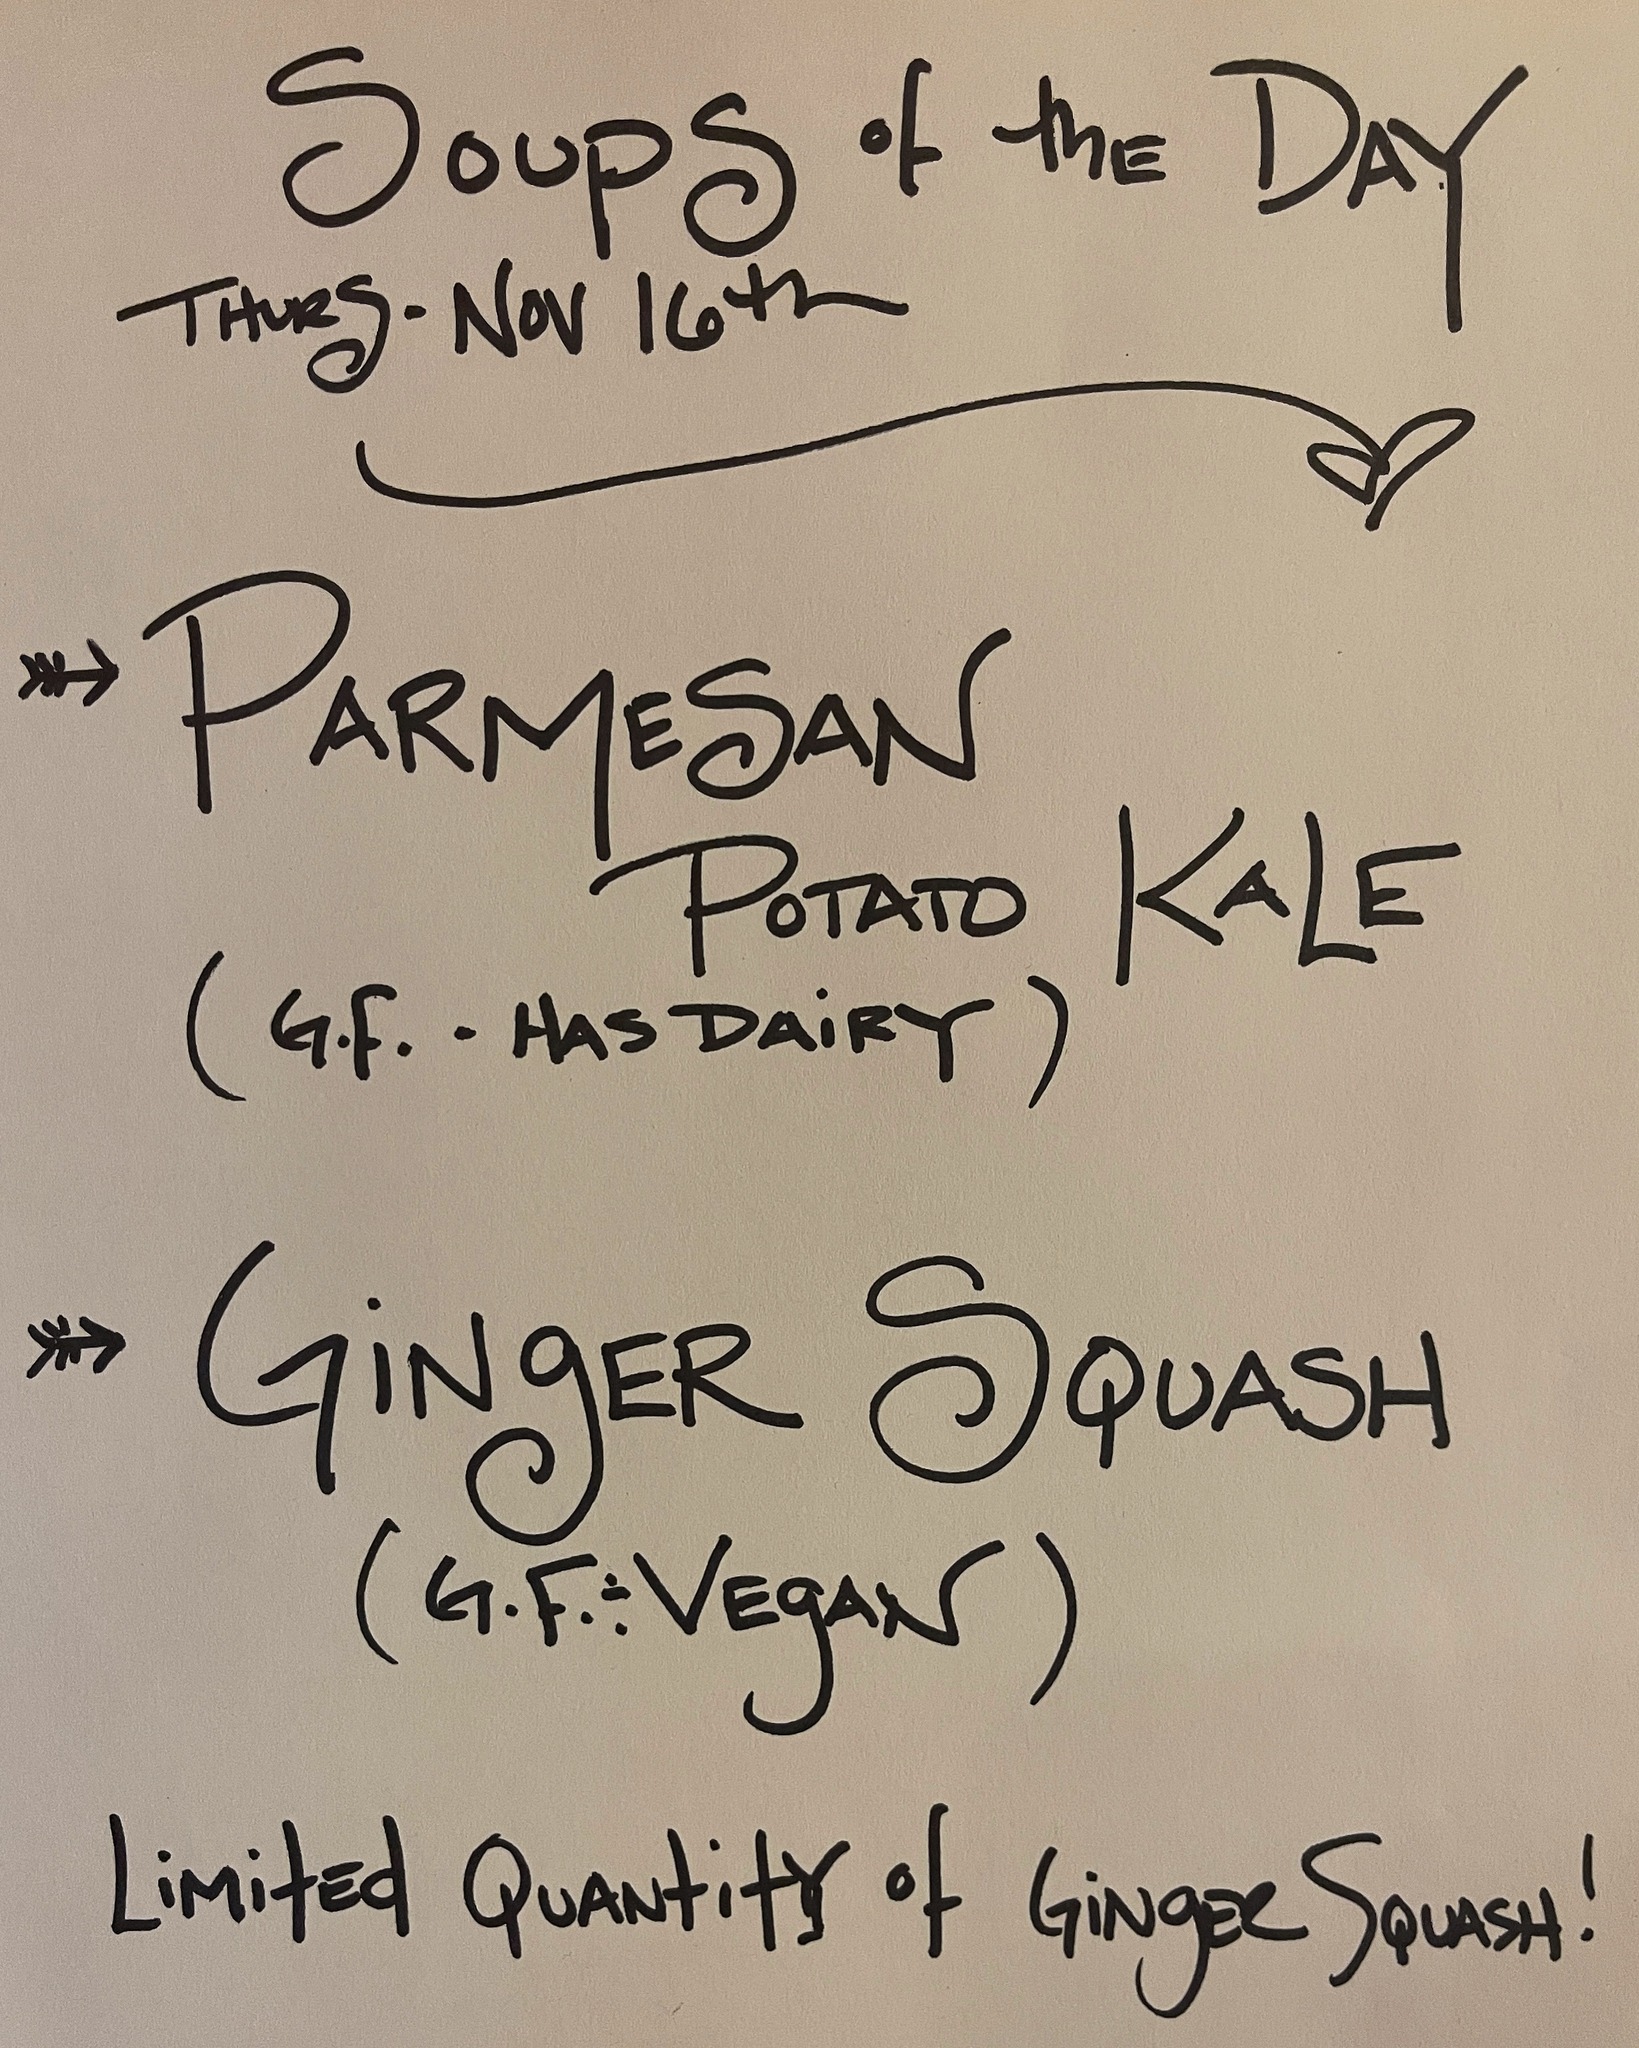 Soups of the Day
Thurs. Nov 16th
Parmesan
Potato Kale
(G.F. - Has Dairy)
Ginger Squash
(G.F. ÷ Vegan)
Limited Quantity of Ginger Squash!